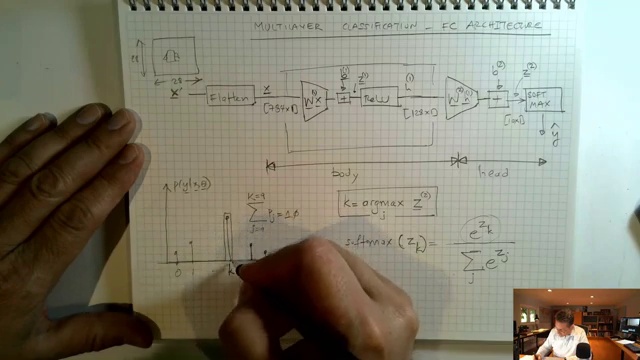 MULTILAYER CLASSIFICATION - FC ARCHITECTURE
28
28
X
Flatten
x
[784x1]
W⁽¹⁾x
b⁽¹⁾
+
z⁽¹⁾
ReLU
h⁽¹⁾
[128x1]
W⁽²⁾h⁽¹⁾
b⁽²⁾
+
z⁽²⁾
[10x1]
SOFT
MAX
ŷ
body
head
p(y|x,θ)
k=9
∑ =1.0
j=0
k = argmax z⁽²⁾
j
softmax (z_k) = e^{z_k}
∑ e^{z_j}
j
0 1 k